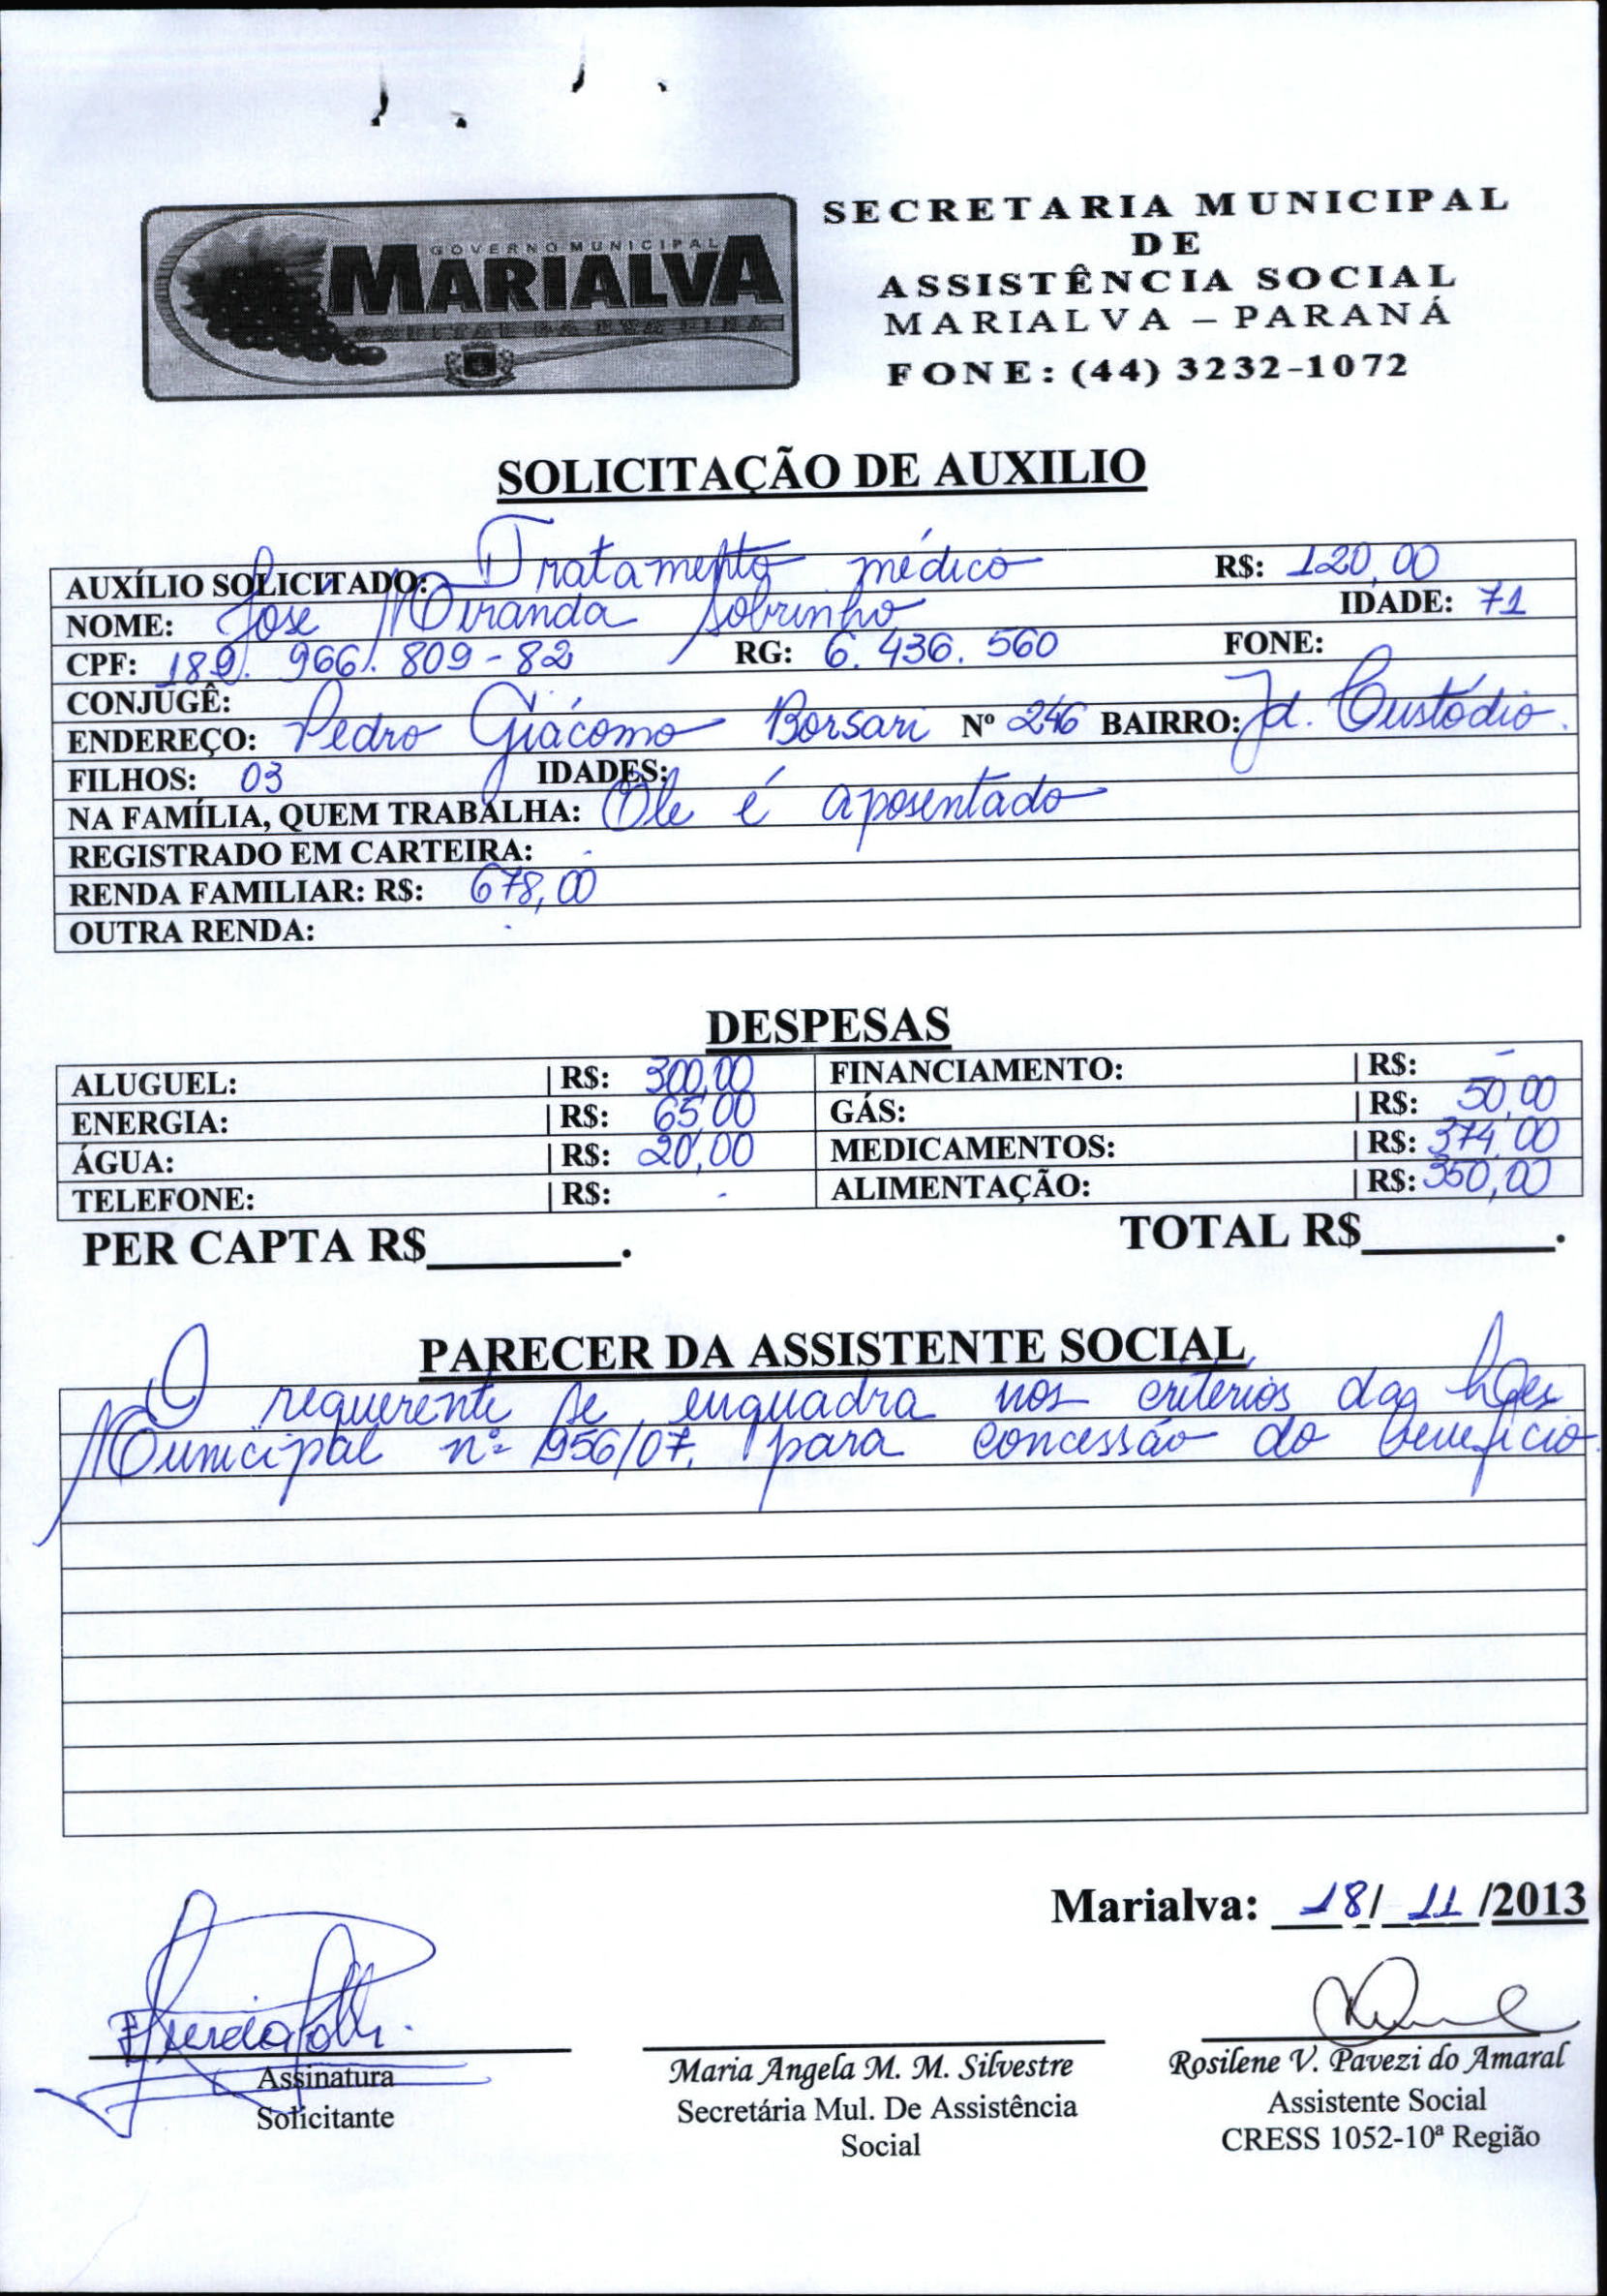 GOVERNO MUNICIPAL
MARIALVA
CAPITAL DA UVA FINA
SECRETARIA MUNICIPAL
DE
ASSISTÊNCIA SOCIAL
MARIALVA – PARANÁ
FONE: (44) 3232-1072
SOLICITAÇÃO DE AUXILIO
AUXÍLIO SOLICITADO: Tratamento médico R$: 120,00
NOME: José Miranda Sobrinho IDADE: 71
CPF: 189. 966. 809-82 RG: 6. 436. 560 FONE:
CONJUGÊ:
ENDEREÇO: Pedro Giácomo Borsari Nº 246 BAIRRO: Jd. Custódio.
FILHOS: 03 IDADES:
NA FAMÍLIA, QUEM TRABALHA: Ele é aposentado
REGISTRADO EM CARTEIRA: -
RENDA FAMILIAR: R$: 678,00
OUTRA RENDA: -
DESPESAS
ALUGUEL: | R$: 300,00 FINANCIAMENTO: | R$: -
ENERGIA: | R$: 65,00 GÁS: | R$: 50,00
ÁGUA: | R$: 20,00 MEDICAMENTOS: | R$: 374,00
TELEFONE: | R$: - ALIMENTAÇÃO: | R$: 350,00
PER CAPTA R$________. TOTAL R$________.
PARECER DA ASSISTENTE SOCIAL
O requerente se enquadra nos critérios das
Municipal nº 956/07, para concessão do benefício.
Marialva: 18/ 11 /2013
Assinatura
Solicitante
Maria Angela M. M. Silvestre
Secretária Mul. De Assistência
Social
Rosilene V. Pavezi do Amaral
Assistente Social
CRESS 1052-10ª Região